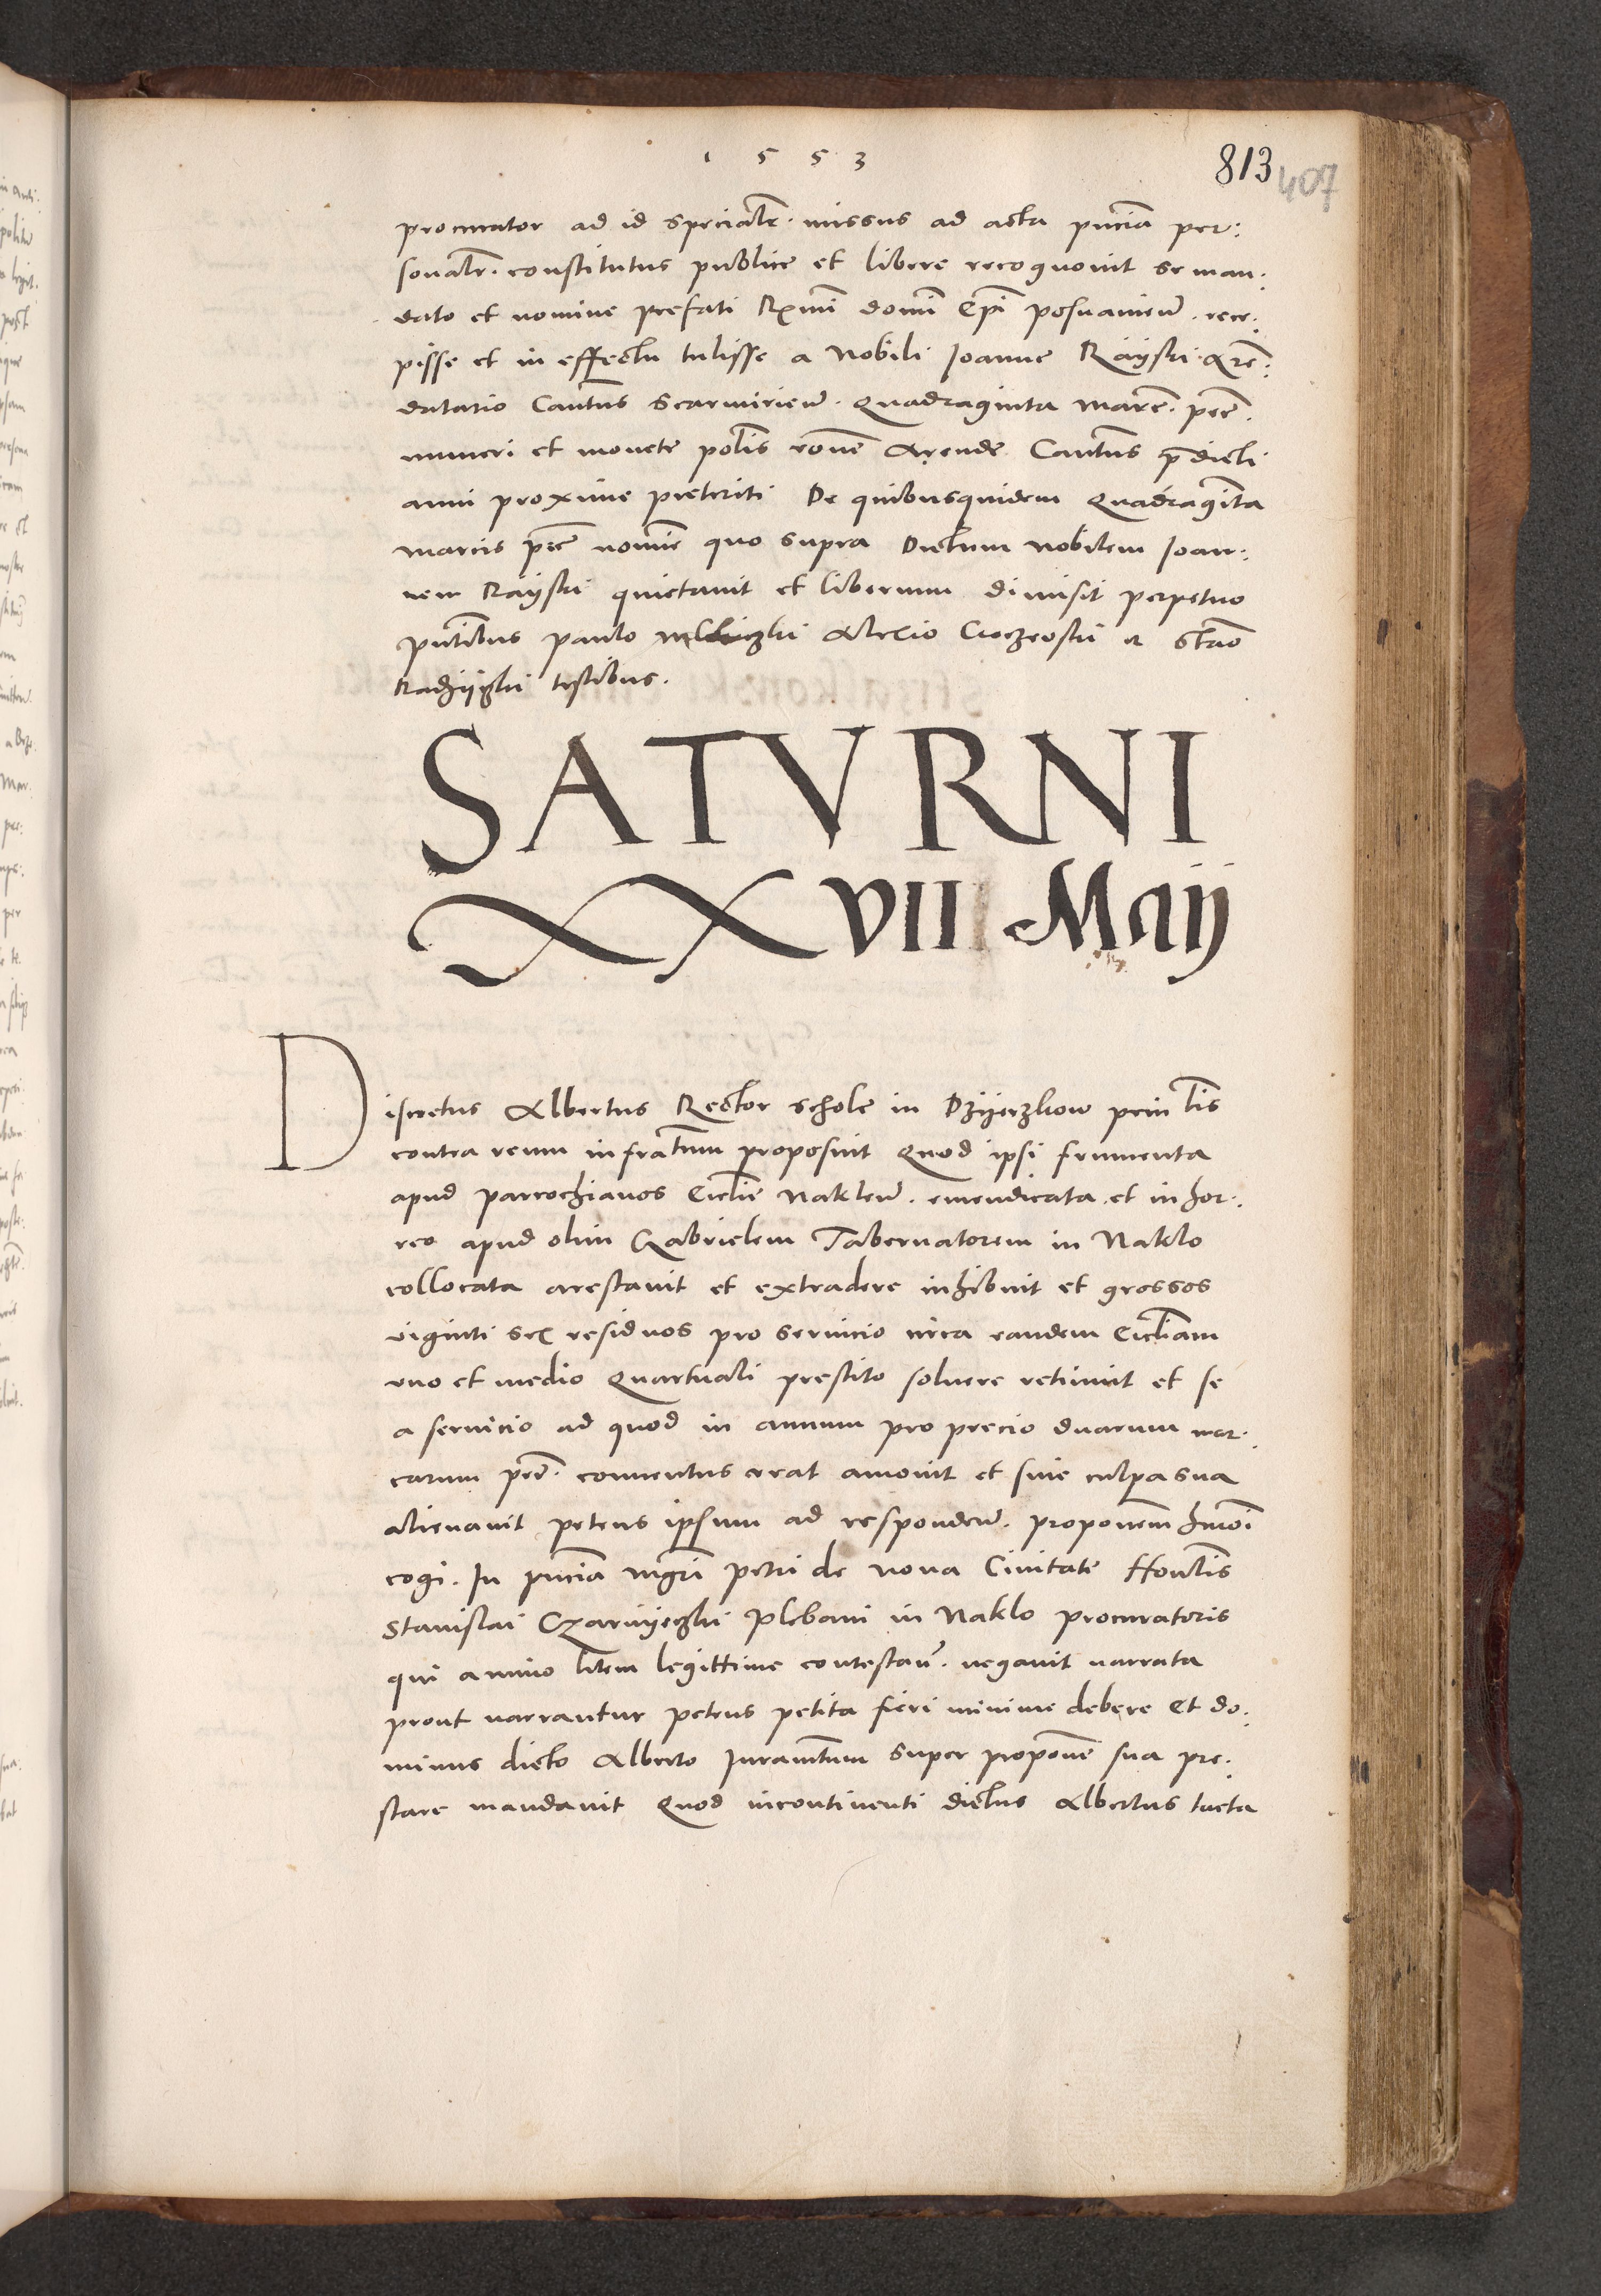 1 5 5 3
813
407
procurator ad id specialr̄. missus ad acta pn̄ciā per:
sonalr̄. constitutus publice et libere recognouit se man:
dato et nomine prefati Rx̄mi domī Ep̄i posnaniēn̄. rece:
pisse et in effectu tulisse a Nobili Joanne Rayski Arē:
datario Cantus̄ Scarmirieñ. Quadraginta marc̄. pēc.
numeri et monete polis̄ rōne Arende Cantus̄ p̄dicti
anni proxime preteriti De quibusquidem Quadragīta
marcis pēc nomīe quo supra Dictum nobilem Joan:
nem Rayski quietauit et liberum dimisit perpetuo
pn̄tibus paulo Alexio et Stāo
testibus.
SATVRNI
XXVII Maij
Discretus Albertus Rector schole in Dzyerzkow prin lis̄
contra reum infrātum proposuit Quod ipsi frumenta
apud parrochianos Ecclīe Nakleñ. emendicata et in hor:
reo apud olim Gabrielem Tabernatorem in Naklo
collocata arestauit et extradere inhibuit et grossos
viginti sex residuos pro seruicio circa eandem Eccl̄iam
vno et medio Quartuali prestito soluere retinuit et se
a seruicio ad quod in annum pro precio duarum mar:
carum pēc. conuentus erat amouit et sine culpa sua
alienauit petens ipsum ad respondeñ. proponem̄ hmōi
cogi. In pn̄ciā mgr̄i petri de noua Ciuitate ffonlis̄
Stanislai Czarnyeczki Plebani in Naklo procuratoris
qui animo litem legittime contestañ. negauit narrata
prout narrantur petens petita fieri minime debere Et do:
minus dicto Alberto Juramtum̄ super propone sua pre:
stare mandauit Quod incontinenti dictus Albertus tacta